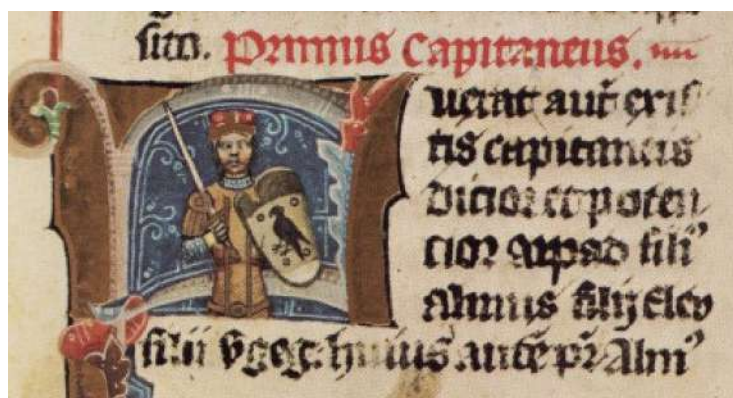 sito. Primus Capitaneus.
Fuerat aut̄ ex is
tis capitaneis
dicior et poten
cior arpad filiꝰ
Almus filij Eleu
filii vgeg. huius autē pr̄ Almꝰ